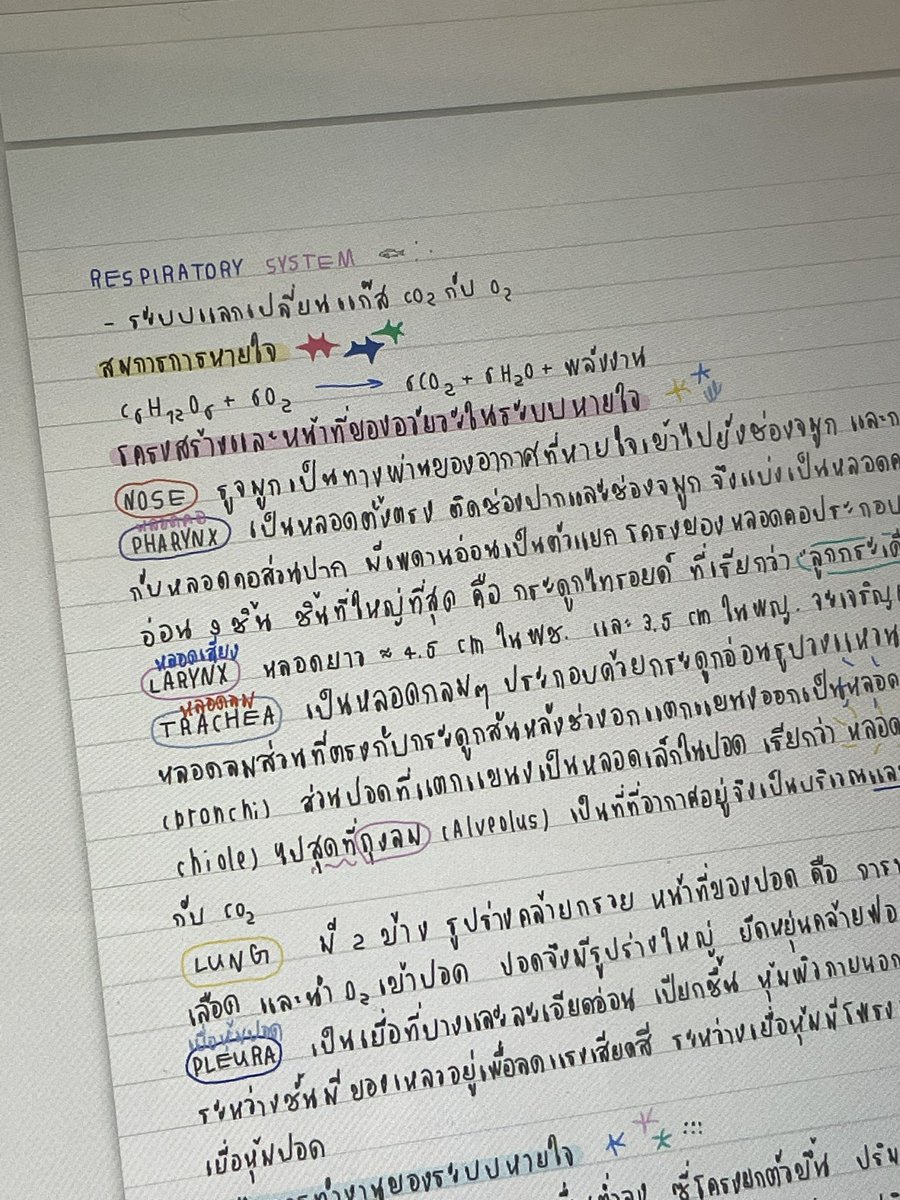 RESPIRATORY SYSTEM
- ระบบแลกเปลี่ยนแก๊ส CO2 กับ O2
สมการการหายใจ
C6H12O6 + 6O2 → 6CO2 + 6H2O + พลังงาน
โครงสร้างและหน้าที่ของอวัยวะในระบบหายใจ
NOSE รูจมูกเป็นทางผ่านของอากาศที่หายใจเข้าไปยังช่องจมูก และก
หลอดคอ
PHARYNX เป็นหลอดตั้งตรง ติดช่องปากและช่องจมูก จึงแบ่งเป็นหลอดค
กับหลอดคอส่วนปาก มีเพดานอ่อนเป็นตัวแยก โครงของหลอดคอประกอบ
อ่อน 9 ชิ้น ชิ้นที่ใหญ่ที่สุด คือ กระดูกไทรอยด์ ที่เรียกว่า "ลูกกระเดื
หลอดเสียง
LARYNX หลอดยาว ≈ 4.5 cm ในผช. และ 3.5 cm ในผญ. จะเจริญเ
หลอดลม
TRACHEA เป็นหลอดกลมๆ ประกอบด้วยกระดูกอ่อนรูปวงแหวน
หลอดลมส่วนที่ตรงกับกระดูกสันหลังช่วงอกแตกแขนงออกเป็นหลอด
(bronchi) ส่วนปอดที่แตกแขนงเป็นหลอดเล็กในปอด เรียกว่า หลอด
chiole) ไปสุดที่ถุงลม (Alveolus) เป็นที่ที่อากาศอยู่จึงเป็นบริเวณแล
กับ CO2
LUNG มี 2 ข้าง รูปร่างคล้ายกรวย หน้าที่ของปอด คือ การ
เลือด และนำ O2 เข้าปอด ปอดจึงมีรูปร่างใหญ่ ยืดหยุ่นคล้ายฟอ
เยื่อหุ้มปอด
PLEURA เป็นเยื่อที่บางและละเอียดอ่อน เปียกชื้น หุ้มผิวภายนอก
ระหว่างชั้นมี ของเหลวอยู่เพื่อลดแรงเสียดสี ระหว่างเยื่อหุ้มมีโพรง
เยื่อหุ้มปอด
การทำงานของระบบหายใจ
ซี่โครงยกตัวขึ้น ปริม